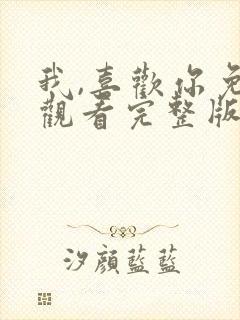 我,喜歡你免
觀看完整版
汐顔藍藍